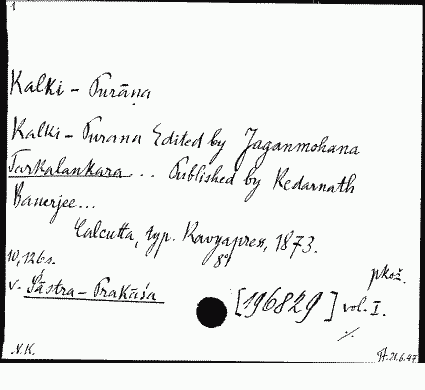 1
Kalki - Purāṇa
Kalki - Purana Edited by Jaganmohana
Tarkalankara .. Published by Kedarnath
Banerjee...
Calcutta, typ. Kavyapres, 1873.
8°
10, 126 s.
pkož.
v. Śāstra - Prakāśa
[196829] vol. I.
·/.
N.K.
21.6.47